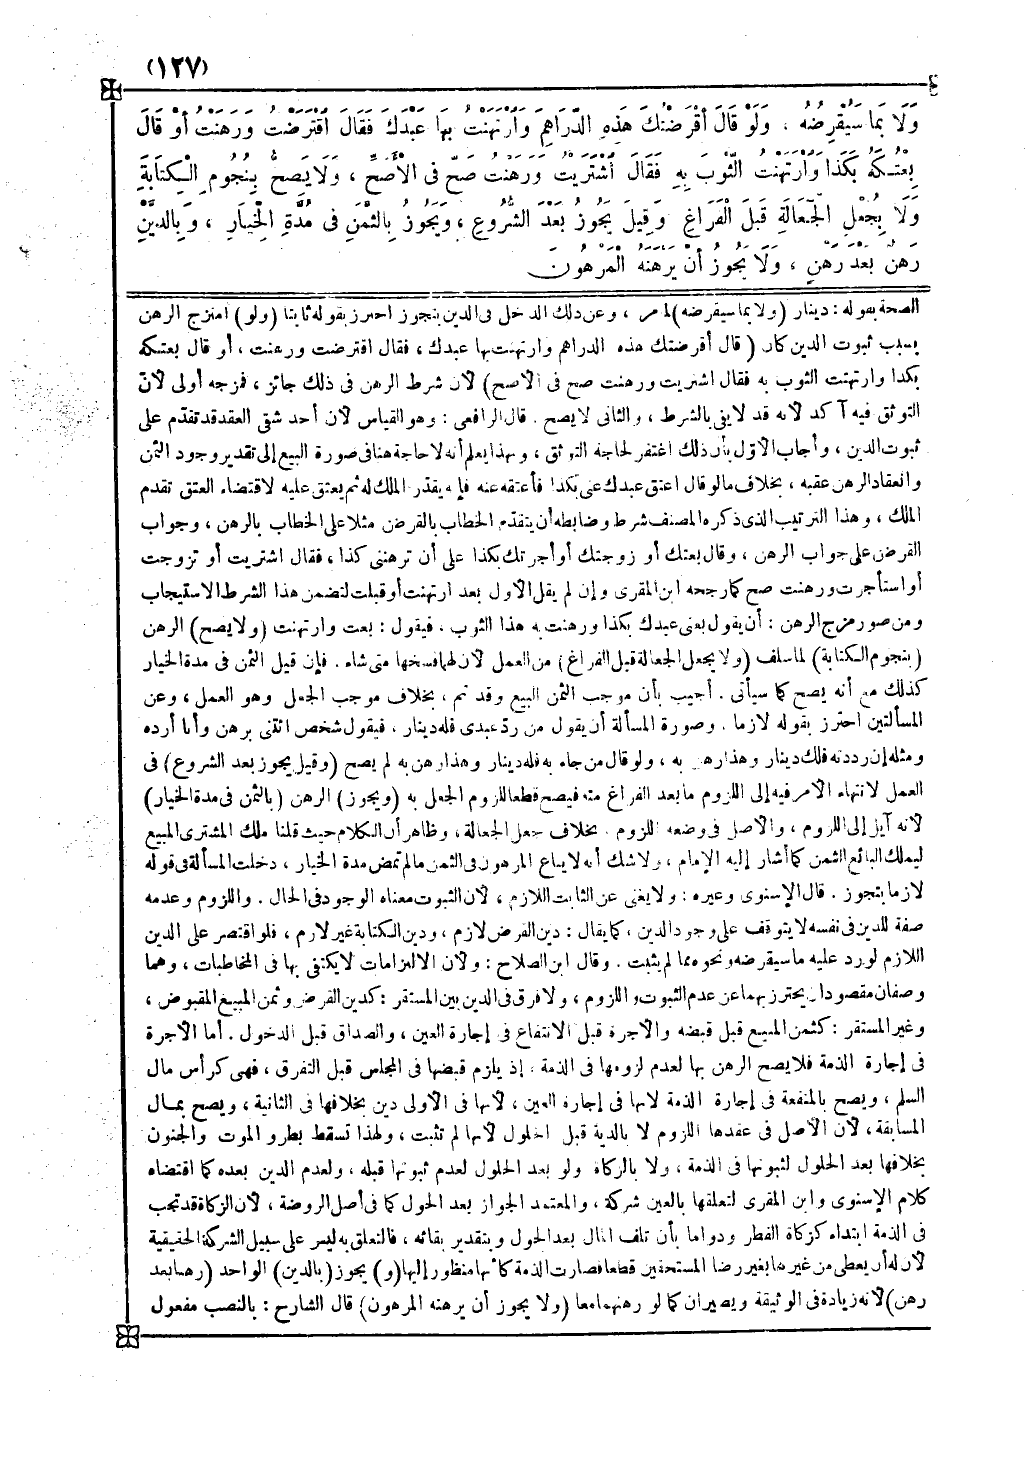 (١٢٧)
وَلَا بِمَا سَيُقْرِضُهُ ، وَلَوْ قَالَ أَقْرَضْتُكَ هَذِهِ الدَّرَاهِمَ وَارْتَهَنْتُ بِهَا عَبْدَكَ فَقَالَ اقْتَرَضْتُ وَرَهَنْتُ أَوْ قَالَ
بِعْتُكَهُ بِكَذَا وَارْتَهَنْتُ الثَّوْبَ بِهِ فَقَالَ اشْتَرَيْتُ وَرَهَنْتُ صَحَّ فِى الْأَصَحِّ ، وَلَا يَصِحُّ بِنُجُومِ الْكِتَابَةِ
وَلَا بِجُعْلِ الْجَعَالَةِ قَبْلَ الْفَرَاغِ وَقِيلَ يَجُوزُ بَعْدَ الشُّرُوعِ ، وَيَجُوزُ بِالثَّمَنِ فِى مُدَّةِ الْخِيَارِ ، وَبِالدَّيْنِ
رَهْنٌ بَعْدَ رَهْنٍ ، وَلَا يَجُوزُ أَنْ يَرْهَنَهُ الْمَرْهُونَ
الصحة بقوله : دينار (ولا بما سيقرضه) لما مر ، وعن ذلك الدخل فى الدين بتجوز احترز بقوله ثابتا (ولو) امتزج الرهن
بسبب ثبوت الدين كأن (قال أقرضتك هذه الدراهم وارتهنت بها عبدك ، فقال اقترضت ورهنت ، أو قال بعتكه
بكذا وارتهنت الثوب به فقال اشتريت ورهنت صح فى الأصح) لأن شرط الرهن فى ذلك جائز ، فمزجه أولى لأن
التوثق فيه آكد لأنه قد لا يفى بالشرط ، والثانى لا يصح . قال الرافعى : وهو القياس لأن أحد شقى العقد قد تقدّم على
ثبوت الدين ، وأجاب الأوّل بأن ذلك اغتفر لحاجة التوثق ، وبهذا يعلم أنه لا حاجة هنا فى صورة البيع إلى تقدير وجود الثمن
وانعقاد الرهن عقبه ، بخلاف ما لو قال اعتق عبدك عنى بكذا فأعتقه عنه فإنه يقدّر الملك له ثم يعتق عليه لاقتضاء العتق تقدم
الملك ، وهذا الترتيب الذى ذكره المصنف شرط وضابطه أن يتقدّم الخطاب بالقرض مثلا على الخطاب بالرهن ، وجواب
القرض على جواب الرهن ، وقال بعتك أو زوجتك أو أجرتك بكذا على أن ترهننى كذا ، فقال اشتريت أو تزوجت
أو استأجرت ورهنت صح كما رجحه ابن المقرى وإن لم يقل الأول بعد ارتهنت أو قبلت لتضمن هذا الشرط الاستيجاب
ومن صور مزج الرهن : أن يقول بعنى عبدك بكذا ورهنت به هذا الثوب . فيقول : بعت وارتهنت (ولا يصح) الرهن
(بنجوم الكتابة) لما سلف (ولا بجعل الجعالة قبل الفراغ) من العمل لأن لهما فسخها متى شاء . فإن قيل الثمن فى مدة الخيار
كذلك مع أنه يصح كما سيأتى . أجيب بأن موجب الثمن البيع وقد تم ، بخلاف موجب الجعل وهو العمل ، وعن
المسألتين احترز بقوله لازما . وصورة المسألة أن يقول من ردّ عبدى فله دينار ، فيقول شخص ائتنى برهن وأنا أرده
ومثله إن رددته فلك دينار وهذا رهن به ، ولو قال من جاء به فله دينار وهذا رهن به لم يصح (وقيل يجوز بعد الشروع) فى
العمل لانتهاء الأمر فيه إلى اللزوم ما بعد الفراغ منه فيصح قطعا للزوم الجعل به (ويجوز) الرهن (بالثمن فى مدة الخيار)
لأنه آيل إلى اللزوم ، والأصل فى وضعه اللزوم . بخلاف جعل الجعالة ، وظاهر أن الكلام حيث قلنا ملك المشترى المبيع
ليملك البائع الثمن كما أشار إليه الإمام ، ولا شك أنه لا يباع المرهون فى الثمن ما لم تمض مدة الخيار ، دخلت المسألة فى قوله
لازما بتجوز . قال الإسنوى وغيره : ولا يغنى عن الثابت اللازم ، لأن الثبوت معناه الوجود فى الحال . واللزوم وعدمه
صفة للدين فى نفسه لا يتوقف على وجود الدين ، كما يقال : دين القرض لازم ، ودين الكتابة غير لازم ، فلو اقتصر على الدين
اللازم لورد عليه ما سيقرضه ونحوه مما لم يثبت . وقال ابن الصلاح : ولأن الالتزامات لا يكتفى بها فى المخاطبات ، وهما
وصفان مقصودان يحترز بهما عن عدم الثبوت واللزوم ، ولا فرق فى الدين بين المستقر : كدين القرض وثمن المبيع المقبوض ،
وغير المستقر : كثمن المبيع قبل قبضه والأجرة قبل الانتفاع فى إجارة العين ، والصداق قبل الدخول . أما الأجرة
فى إجارة الذمة فلا يصح الرهن بها لعدم لزومها فى الذمة ، إذ يلزم قبضها فى المجلس قبل التفرق ، فهى كرأس مال
السلم ، ويصح بالمنفعة فى إجارة الذمة لا بها فى إجارة العين ، لأنها فى الأولى دين بخلافها فى الثانية ، ويصح بمال
المسابقة ، لأن الأصل فى عقدها اللزوم لا بالدية قبل الحلول لأنها لم تثبت ، ولهذا تسقط بطرو الموت والجنون
بخلافها بعد الحلول لثبوتها فى الذمة ، ولا بالزكاة ولو بعد الحلول لعدم ثبوتها قبله ، ولعدم الدين بعده كما اقتضاه
كلام الإسنوى وابن المقرى لتعلقها بالعين شركة ، والمعتمد الجواز بعد الحول كما فى أصل الروضة ، لأن الزكاة قد تجب
فى الذمة ابتداء كزكاة الفطر ودواما بأن تلف المال بعد الحول وبتقدير بقائه ، فالتعلق به ليس على سبيل الشركة الحقيقية
لأن له أن يعطى من غيرها بغير رضا المستحقين قطعا فصارت الذمة كأنها منظور إليها (و) يجوز (بالدين) الواحد (رهنا بعد
رهن) لأنه زيادة فى الوثيقة ويصيران كما لو رهنهما معا (ولا يجوز أن يرهنه المرهون) قال الشارح : بالنصب مفعول